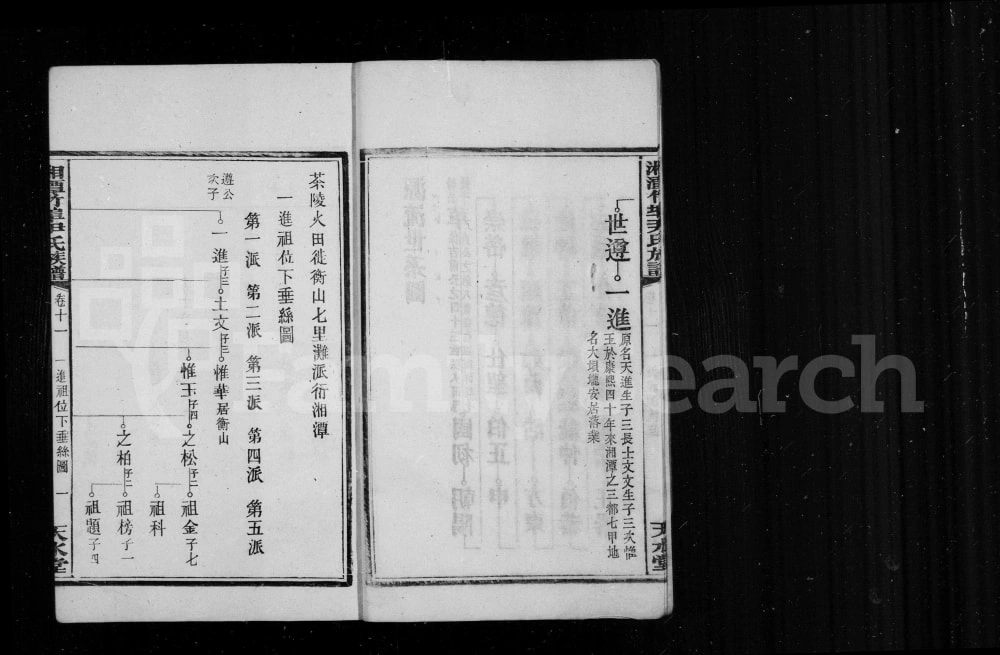 湘潭竹埠尹氏族譜
世遵 一進
原名天進生子三長士文文生子三次惟
王於康熙四十年來湘潭之三都七甲地
名大塤壠安居落業
天水堂
茶陵火田徙衡山七里灘派衍湘潭
一進祖位下垂絲圖
第一派 第二派 第三派 第四派 第五派
遵公
次子
一進 子三 士文 子三 惟華 居衡山
惟玉 子四 之松 子二 祖金 子七
祖科
之柏 子二 祖榜 子一
祖題 子四
湘潭竹埠尹氏族譜 卷十一 一進祖位下垂絲圖 一 天水堂
FamilySearch